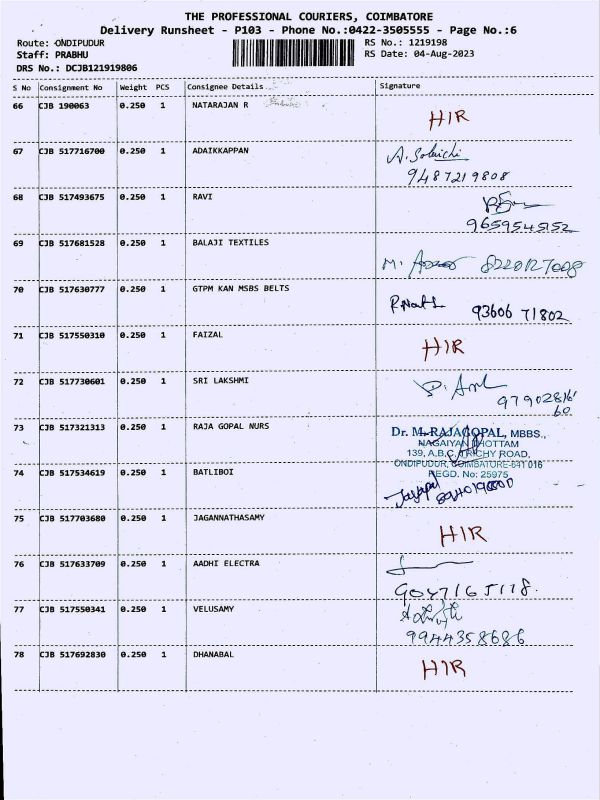 THE PROFESSIONAL COURIERS, COIMBATORE
Delivery Runsheet - P103 - Phone No.:0422-3505555 - Page No.:6
Route: ONDIPUDUR
RS No.: 1219198
Staff: PRABHU
RS Date: 04-Aug-2023
DRS No.: DCJB121919806
S No Consignment No Weight PCS Consignee Details Signature
66 CJB 190063 0.250 1 NATARAJAN R HIR
67 CJB 517716700 0.250 1 ADAIKKAPPAN
9487219808
68 CJB 517493675 0.250 1 RAVI
9659545152
69 CJB 517681528 0.250 1 BALAJI TEXTILES
M. 8220127008
70 CJB 517630777 0.250 1 GTPM KAN MSBS BELTS
93606 71802
71 CJB 517550310 0.250 1 FAIZAL HIR
72 CJB 517730601 0.250 1 SRI LAKSHMI
97902816
60
73 CJB 517321313 0.250 1 RAJA GOPAL NURS
Dr. M.RAJAGOPAL, MBBS.,
NAGAIYAN THOTTAM
139, A,B,C,TRICHY ROAD,
ONDIPUDUR, COIMBATORE-641 016
REGD. No: 25975
74 CJB 517534619 0.250 1 BATLIBOI
Jayapal
75 CJB 517703680 0.250 1 JAGANNATHASAMY HIR
76 CJB 517633709 0.250 1 AADHI ELECTRA
9047165118.
77 CJB 517550341 0.250 1 VELUSAMY
9944358686
78 CJB 517692830 0.250 1 DHANABAL HIR